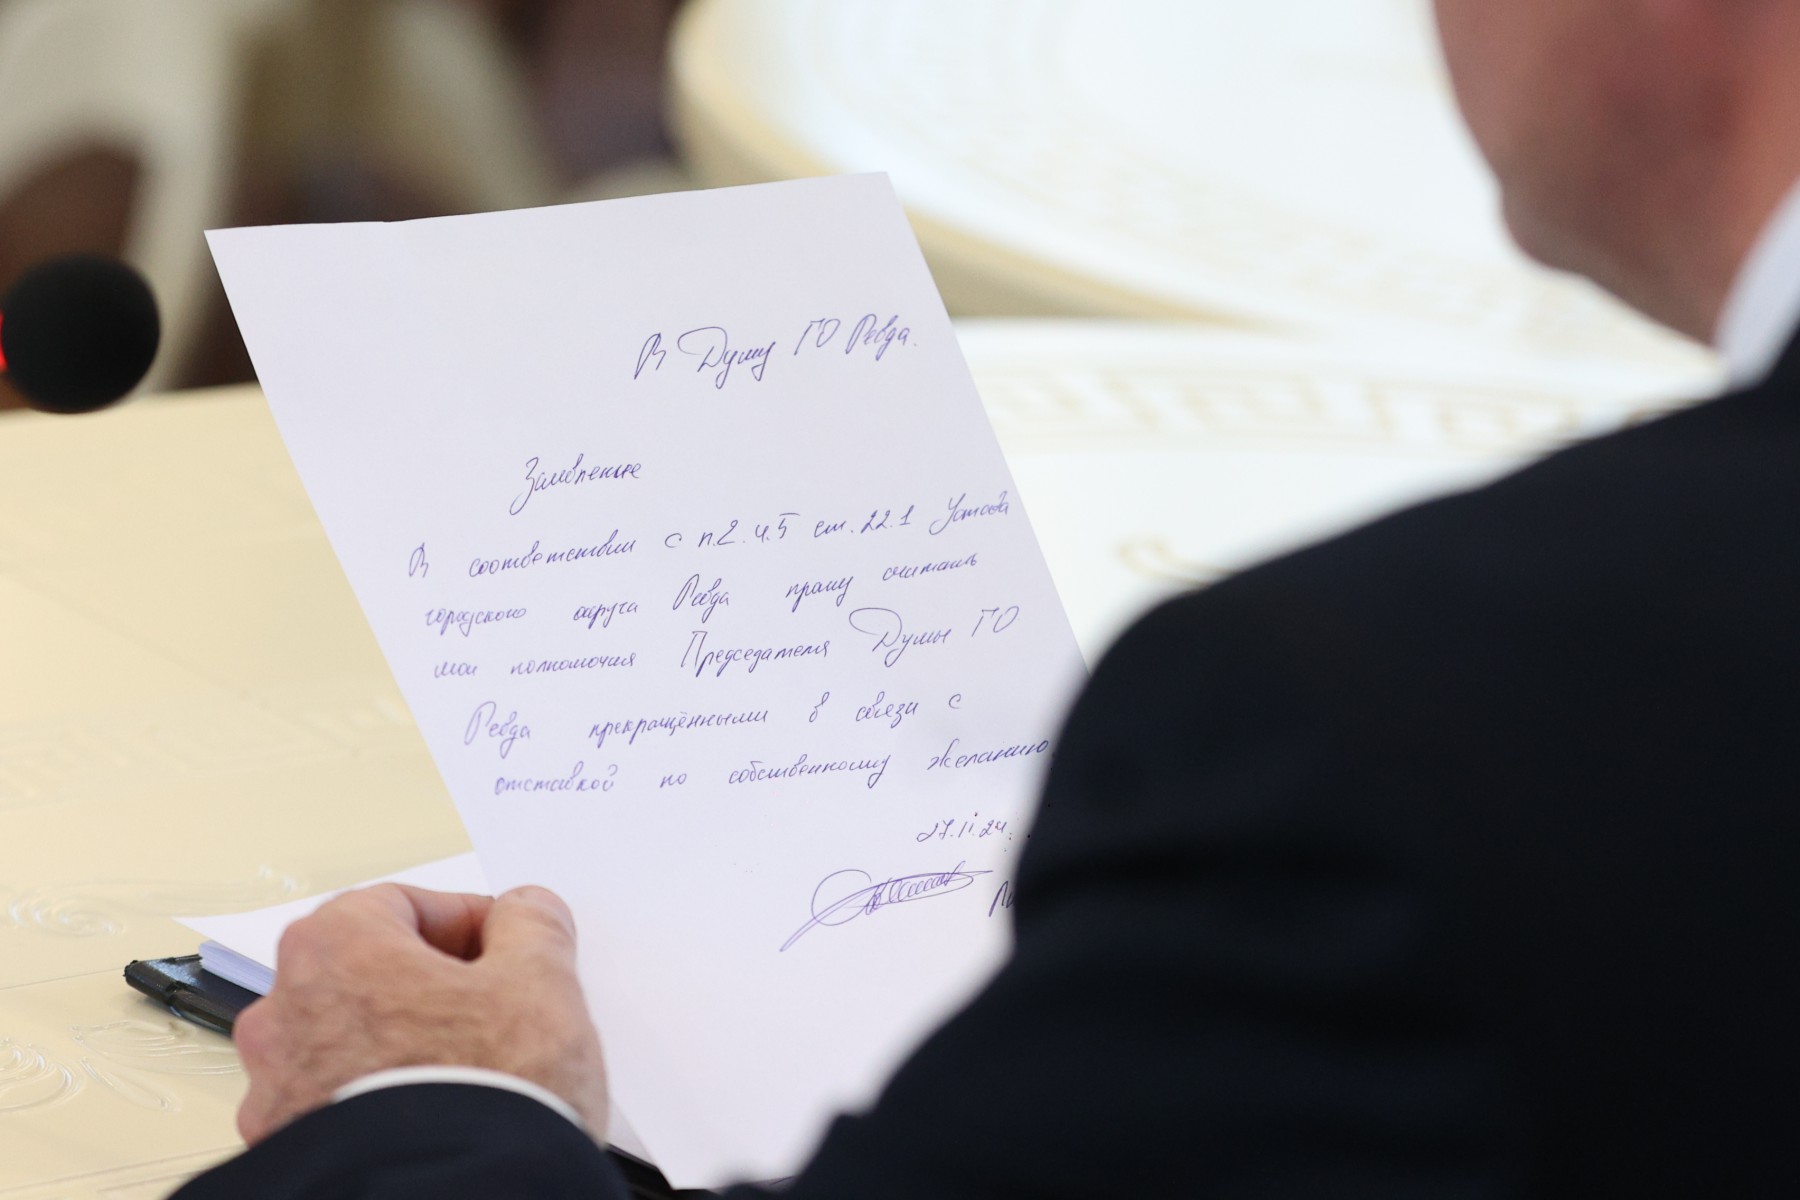 В Думу ГО Ревда.
Заявление
В соответствии с п.2. ч.5 ст. 22.1 Устава
городского округа Ревда прошу считать
мои полномочия Председателя Думы ГО
Ревда прекращёнными в связи с
отставкой по собственному желанию
27.11.24.